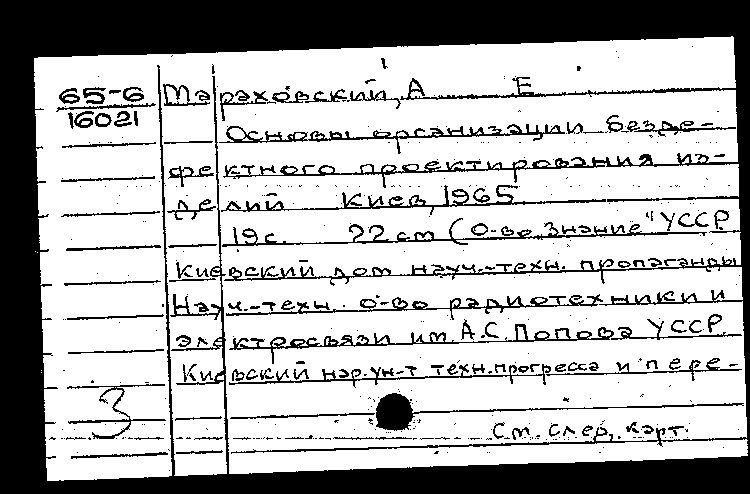 65-6
16021
Мараховский, А Е
Основы организации безде-
фектного проектирования из-
делий Киев, 1965
19с. 22 cm (О-во "Знание" УССР
Киевский дом науч.-техн. пропаганды
Науч.-техн. о-во радиотехники и
электросвязи им. А.С. Попова УССР
Киевский нар. ун-т техн. прогресса и пере-
3
См. след. карт.